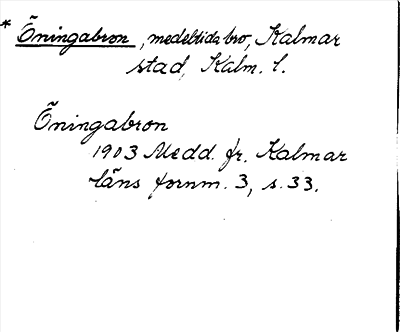 * Öningabron, medeltida bro, Kalmar
stad, Kalm. l.
Öningabron
1903 Medd. fr. Kalmar
läns fornm. 3, s. 33.